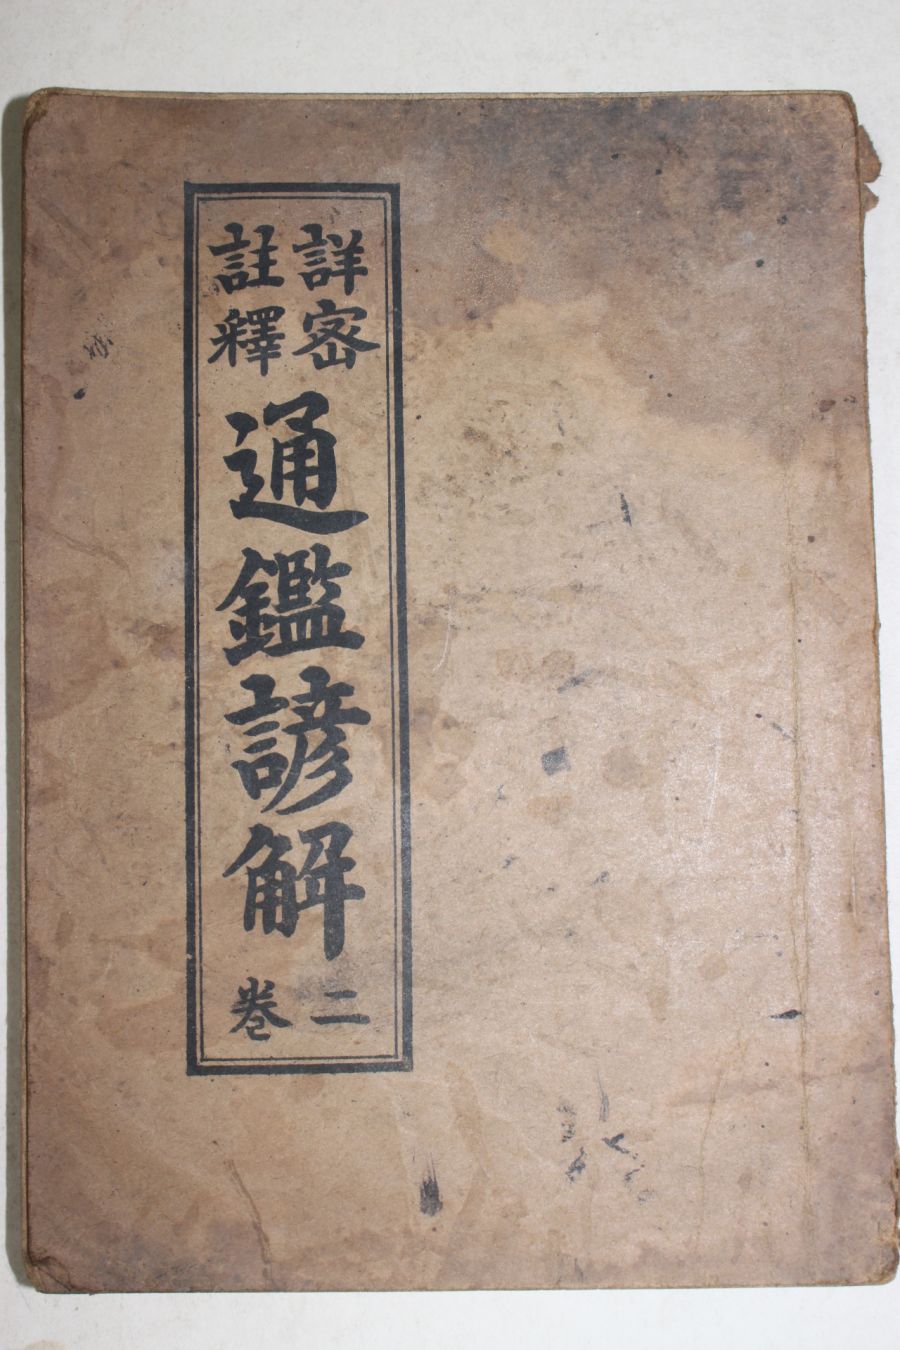 詳密
註釋
通鑑諺解
二卷